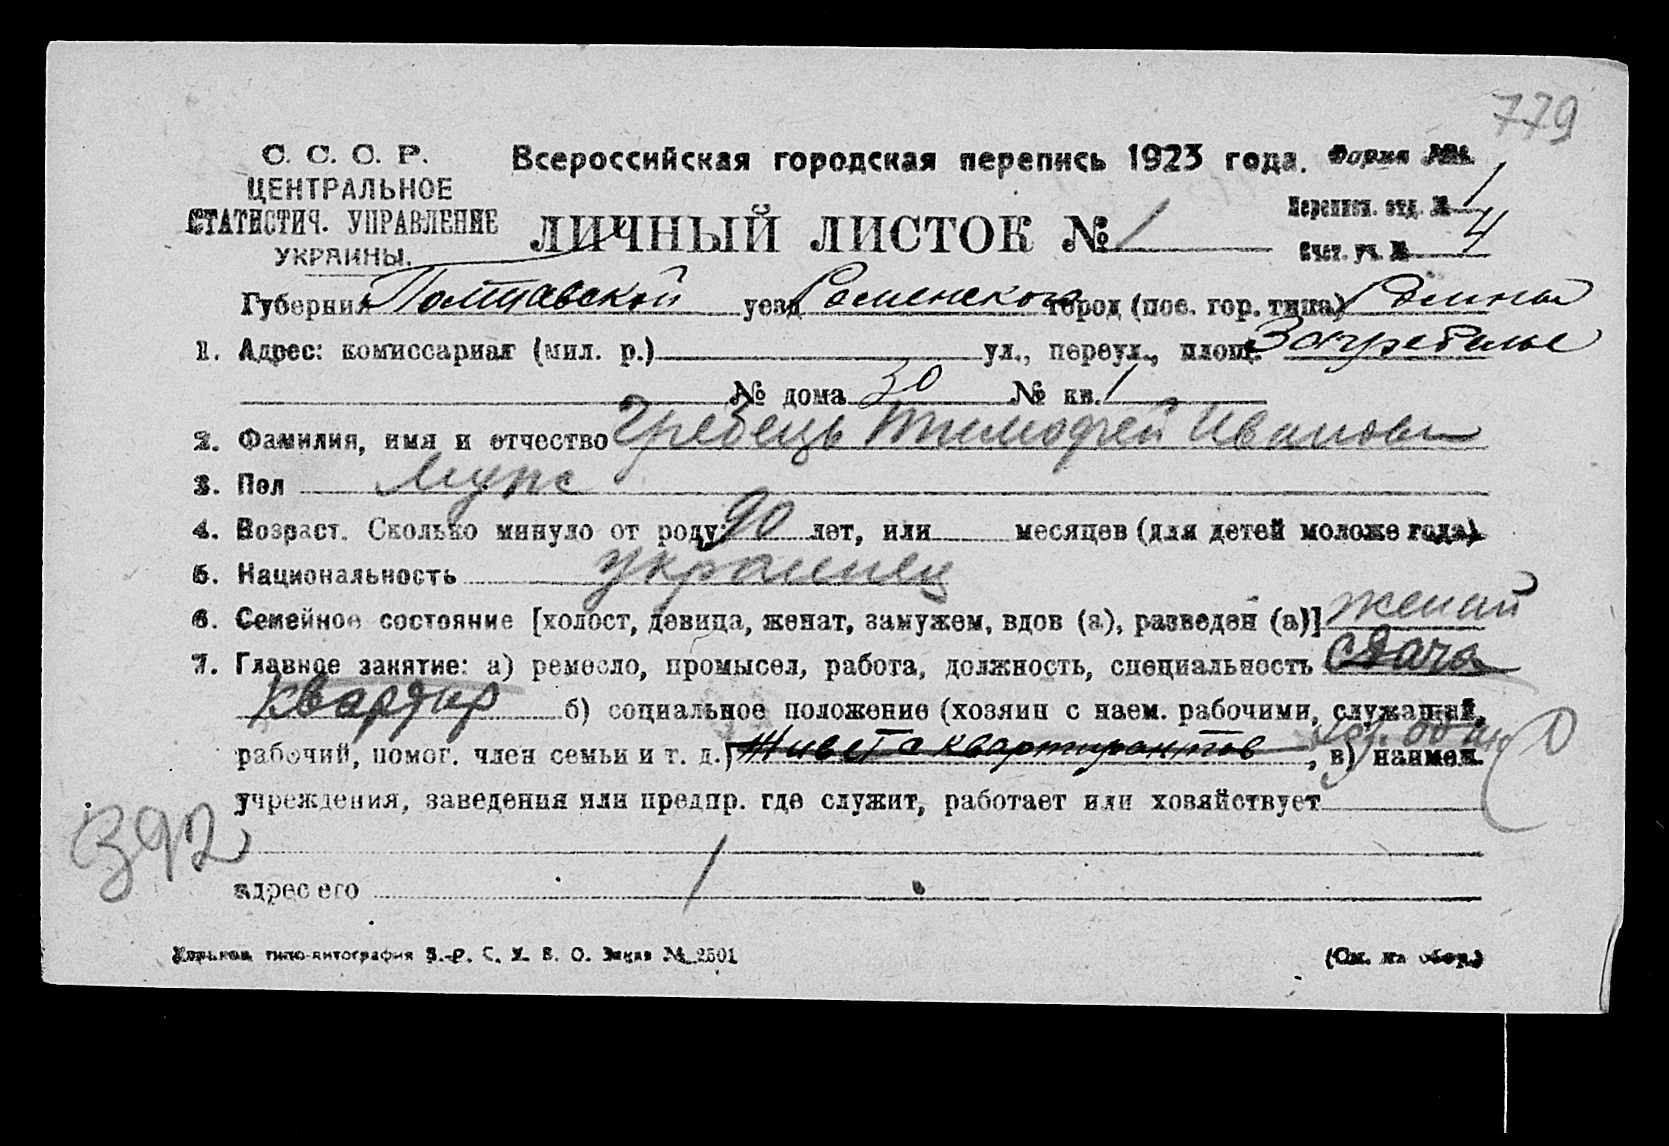 779
С. С. С. Р.
ЦЕНТРАЛЬНОЕ
СТАТИСТИЧ. УПРАВЛЕНИЕ
УКРАИНЫ.
Всероссийская городская перепись 1923 года. Форма №
Переписн. отд. № 1
ЛИЧНЫЙ ЛИСТОК № 1
Счет. уч. № 4
Губерния Полтавской уезд Роменского город (пос. гор. типа) Ромны
1. Адрес: комиссариат (мил. р.) ул., переул., площ. Загребелье
№ дома 30 № кв. 1
2. Фамилия, имя и отчество Гребець Тимофей Иванович
3. Пол муж
4. Возраст. Сколько минуло от роду 90 лет, или месяцев (для детей моложе года)
5. Национальность украинец
6. Семейное состояние [холост, девица, женат, замужем, вдов (а), разведен (а)] женат
7. Главное занятие: а) ремесло, промысел, работа, должность, специальность сдача
квартир б) социальное положение (хозяин с наем. рабочими, служащий,
рабочий, помог. член семьи и т. д.) Живет с квартирантов, в) наимен.
учреждения, заведения или предпр. где служит, работает или хозяйствует
392
адрес его
Харьков, типо-литография В.-Р. С. У. В. О. Заказ № 2501
(См. на обор.)